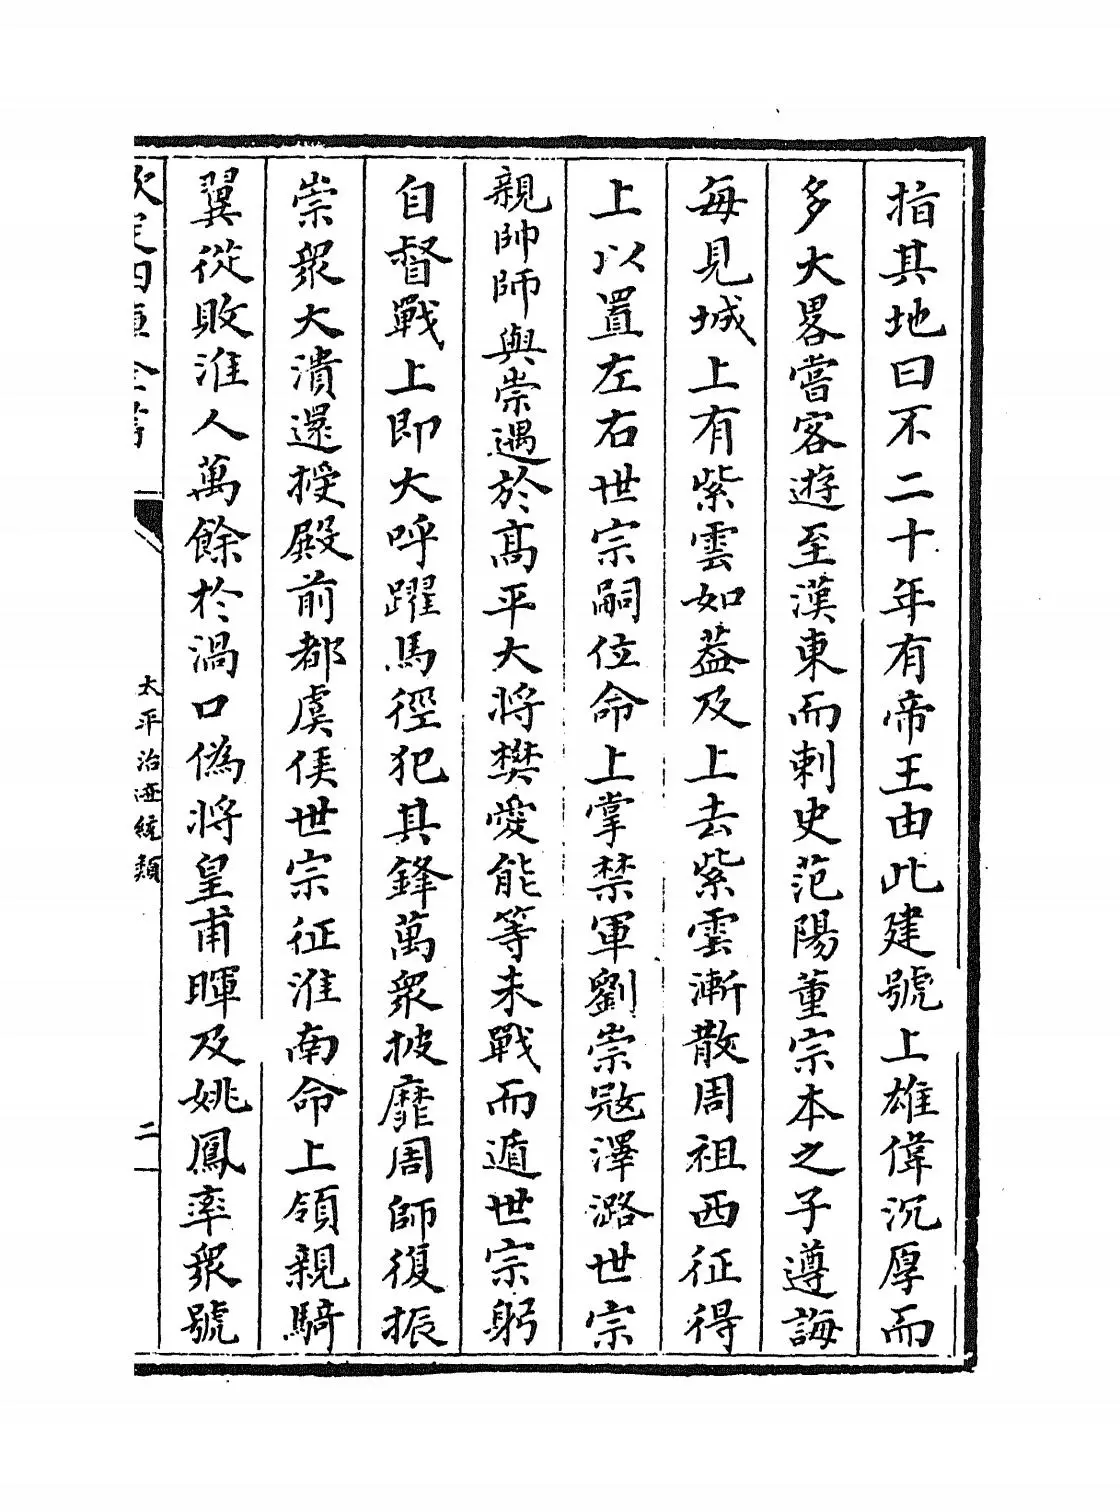 指其地曰不二十年有帝王由此建號上雄偉沉厚而
多大畧嘗客遊至漢東而刺史范陽董宗本之子遵誨
每見城上有紫雲如葢及上去紫雲漸散周祖西征得
上以置左右世宗嗣位命上掌禁軍劉崇冦澤潞世宗
親帥師與崇遇於髙平大將樊愛能等未戰而遁世宗躬
自督戰上即大呼躍馬徑犯其鋒萬衆披靡周師復振
崇衆大潰還授殿前都虞侯世宗征淮南命上領親騎
翼從敗淮人萬餘於渦口偽將皇甫暉及姚鳳率衆號
欽定四庫全書
太平治迹統類
二